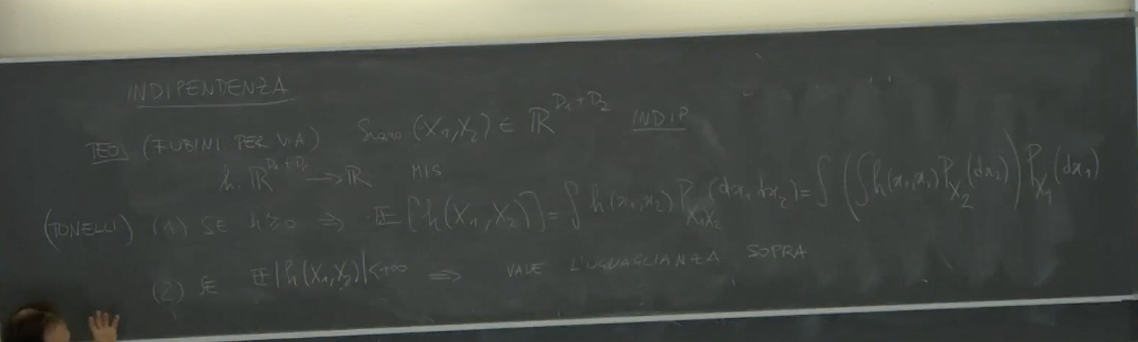 INDIPENDENZA
TEO. (FUBINI PER V.A) Siano (X₁,X₂) ∈ ℝ^{D₁+D₂} INDIP
h: ℝ^{D₁+D₂} → ℝ MIS
(TONELLI) (1) SE h≥0 ⇒ 𝔼[h(X₁,X₂)] = ∫ h(x₁,x₂) P_{X₁X₂}(dx₁,dx₂) = ∫ (∫ h(x₁,x₂) P_{X₂}(dx₂)) P_{X₁}(dx₁)
(2) SE 𝔼|h(X₁,X₂)|<+∞ ⇒ VALE L'UGUAGLIANZA SOPRA